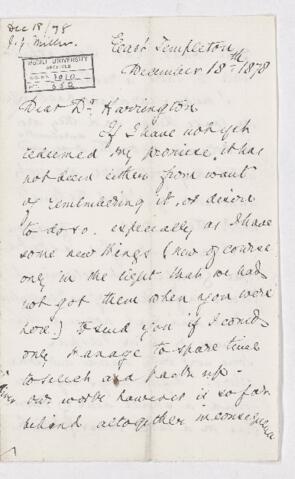 Dec 18/78
J. G. Miller
McGILL UNIVERSITY
ARCHIVES
ACC. NO. 1010
REF. 553
East Templeton
December 18th 1878
Dear Dr Harrington
If I have not yet
redeemed my promise, it has
not been either from want
of remembering it, or desire
to do so. especially as I have
some new things (new of course
only in the light that we had
not got them when you were
here.) to send you if I could
only manage to spare time
to select and pack up -
our work however is so far
behind altogether in consequence